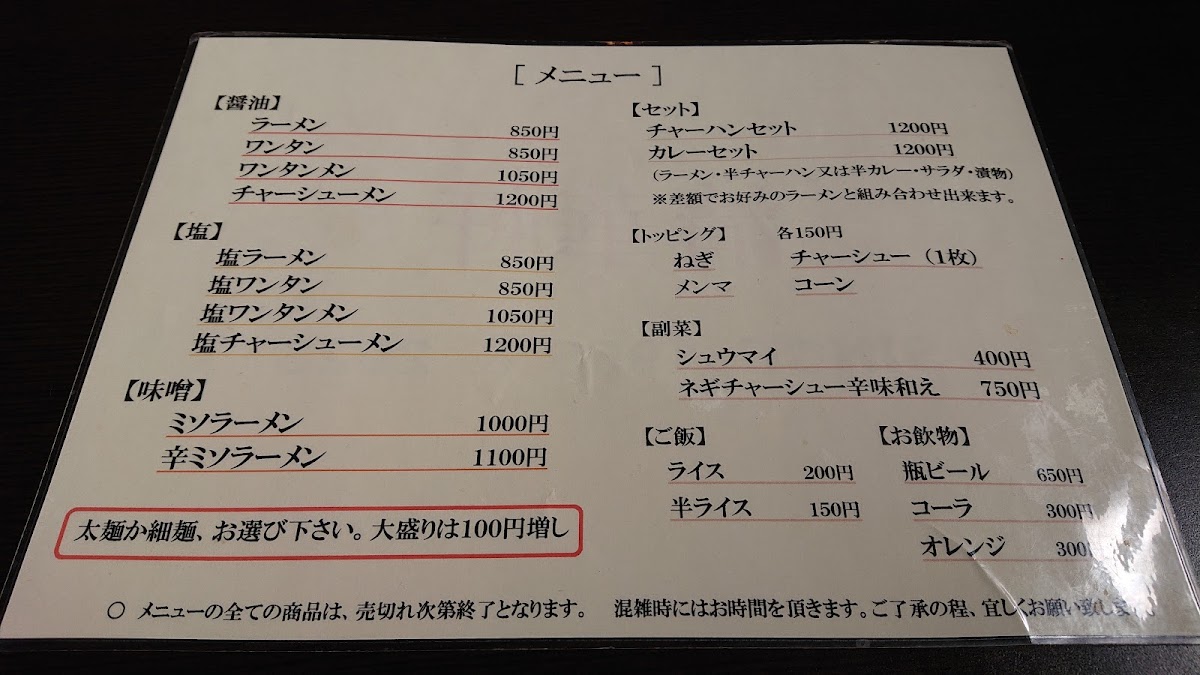 [ メニュー ]
【醤油】
ラーメン 850円
ワンタン 850円
ワンタンメン 1050円
チャーシューメン 1200円
【塩】
塩ラーメン 850円
塩ワンタン 850円
塩ワンタンメン 1050円
塩チャーシューメン 1200円
【味噌】
ミソラーメン 1000円
辛ミソラーメン 1100円
太麺か細麺、お選び下さい。大盛りは100円増し
【セット】
チャーハンセット 1200円
カレーセット 1200円
(ラーメン・半チャーハン又は半カレー・サラダ・漬物)
※差額でお好みのラーメンと組み合わせ出来ます。
【トッピング】 各150円
ねぎ チャーシュー(1枚)
メンマ コーン
【副菜】
シュウマイ 400円
ネギチャーシュー辛味和え 750円
【ご飯】
ライス 200円
半ライス 150円
【お飲物】
瓶ビール 650円
コーラ 300円
オレンジ 300
○ メニューの全ての商品は、売切れ次第終了となります。 混雑時にはお時間を頂きます。ご了承の程、宜しくお願い致しま